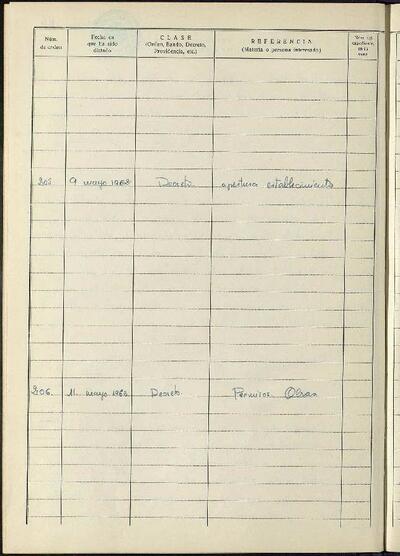 Núm. de orden
Fecha en que ha sido dictado
CLASE (Orden, Bando, Decreto, Providencia, etc.)
REFERENCIA (Materia o persona interesada)
205 9 mayo 1968 Decreto apertura establecimiento
206. 11. mayo 1968 Decreto Permisos Obras